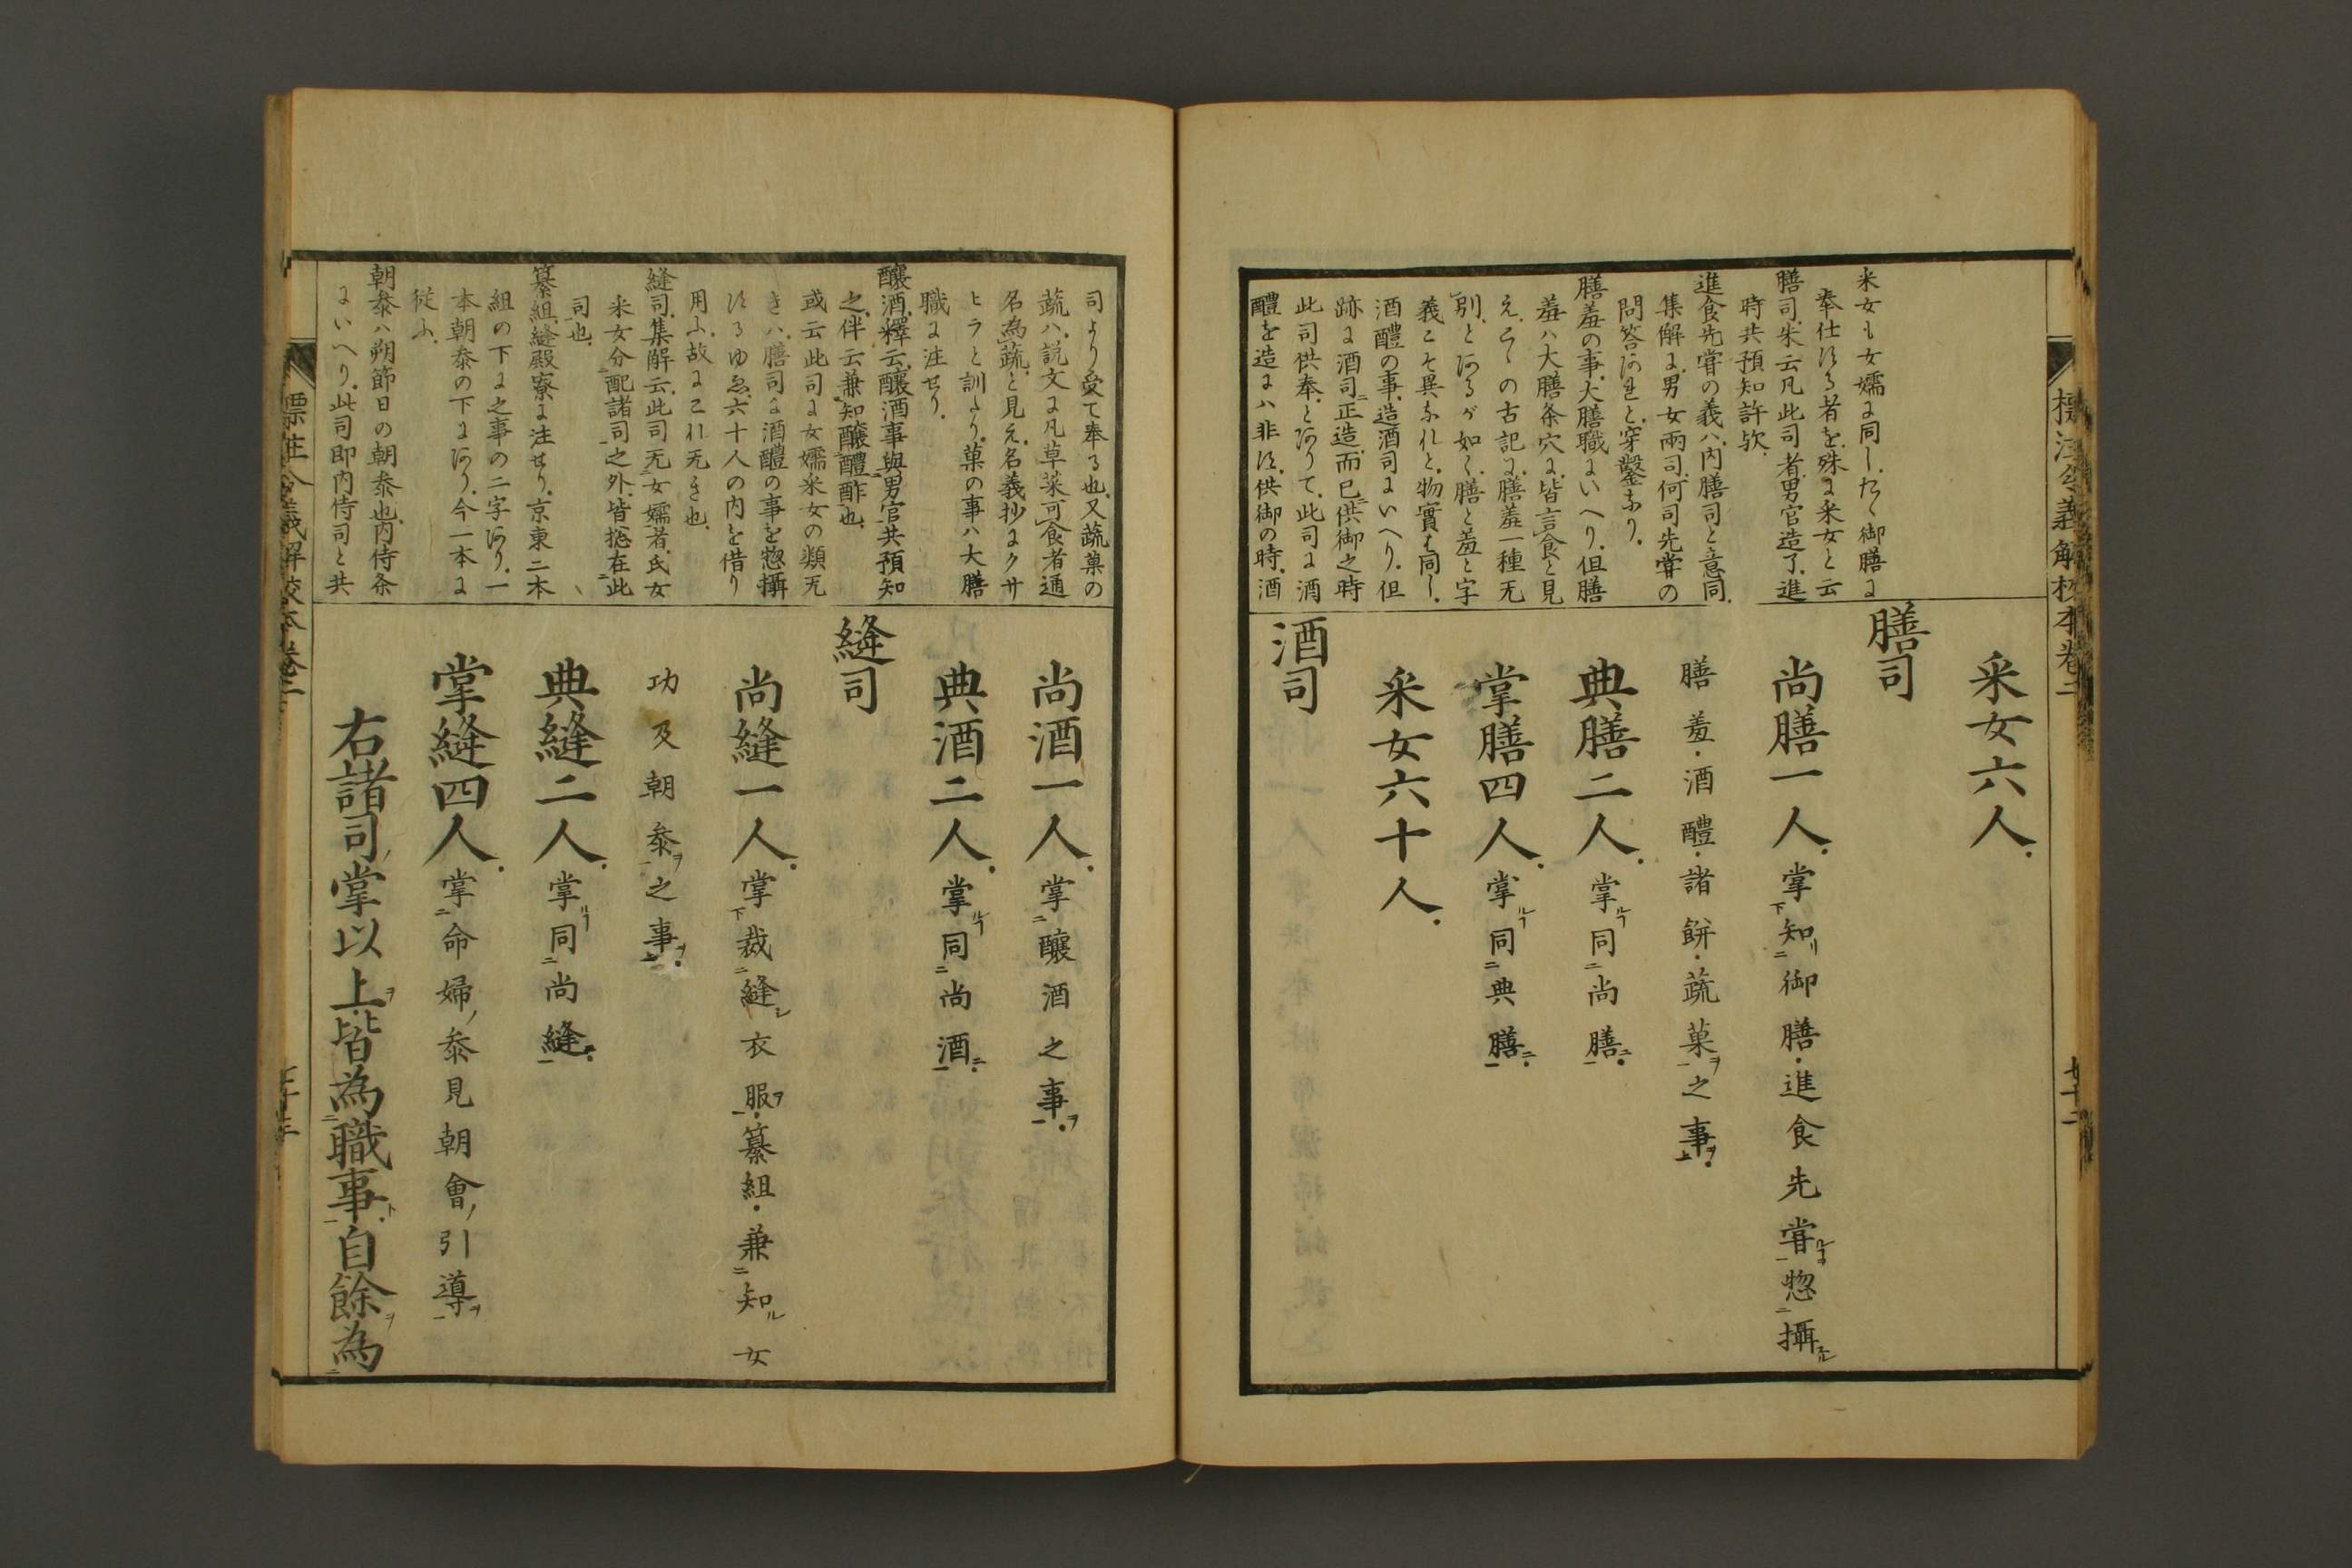 標注令義解校本巻二
七十二
采女も女孺に同し、たゝ御膳に
奉仕する者を、殊に采女と云
膳司、朱云凡此司者、男官造了、進
時共預知許欤、
進食先甞の義ハ、内膳司と意同、
集解に、男女兩司、何司先甞の
問答あれと、穿鑿なり、
膳羞の事、大膳職にいへり、但膳
羞ハ大膳条穴に、皆言食と見
え、こゝの古記に、膳羞一種无
別、とあるが如く、膳と羞と字
義こそ異なれと、物實は同し、
酒醴の事、造酒司にいへり、但
跡に酒司正造而已、供御之時
此司供奉、とありて、此司に酒
醴を造にハ非す、供御の時、酒
采女六人
膳司
尚膳一人掌知リ御膳・進食先甞惣攝
膳羞・酒醴・諸餠・蔬菓ヲ之事ヲ
典膳二人掌同尚膳ニ
掌膳四人掌同典膳ニ
采女六十人
酒司
司より受て奉る也、又蔬菓の
蔬ハ、説文に凡草菜可食者通
名為蔬、と見え、名義抄にクサ
ヒラと訓たり、菓の事ハ大膳
職に注せり、
釀酒、釋云、釀酒事與男官共預知
之、伴云兼知釀醴酢也、
或云此司に女孺采女の類无
きハ、膳司に酒醴の事を惣攝
するゆゑ、六十人の内を借り
用ふ、故にこれ无き也、
縫司、集解云、此司无女孺者、氏女
采女分配諸司之外、皆惣在此
司也、
纂組、縫殿寮に注せり、京東二本
組の下に之事の二字あり、一
本朝叅の下にあり、今一本に
従ふ、
朝叅ハ朔節日の朝叅也、内侍条
にいへり、此司即内侍司と共
尚酒一人掌釀酒之事ヲ
典酒二人掌同尚酒ニ
縫司
尚縫一人掌裁縫シ衣服ヲ・纂組・兼知ル女
功及朝叅ヲ之事ヲ
典縫二人掌同尚縫
掌縫四人掌命婦ノ叅見朝會ノ引導ヲ
右諸司ノ掌以上ヲ皆為職事ト自餘ヲ為
標注令義解校本巻二
七十三